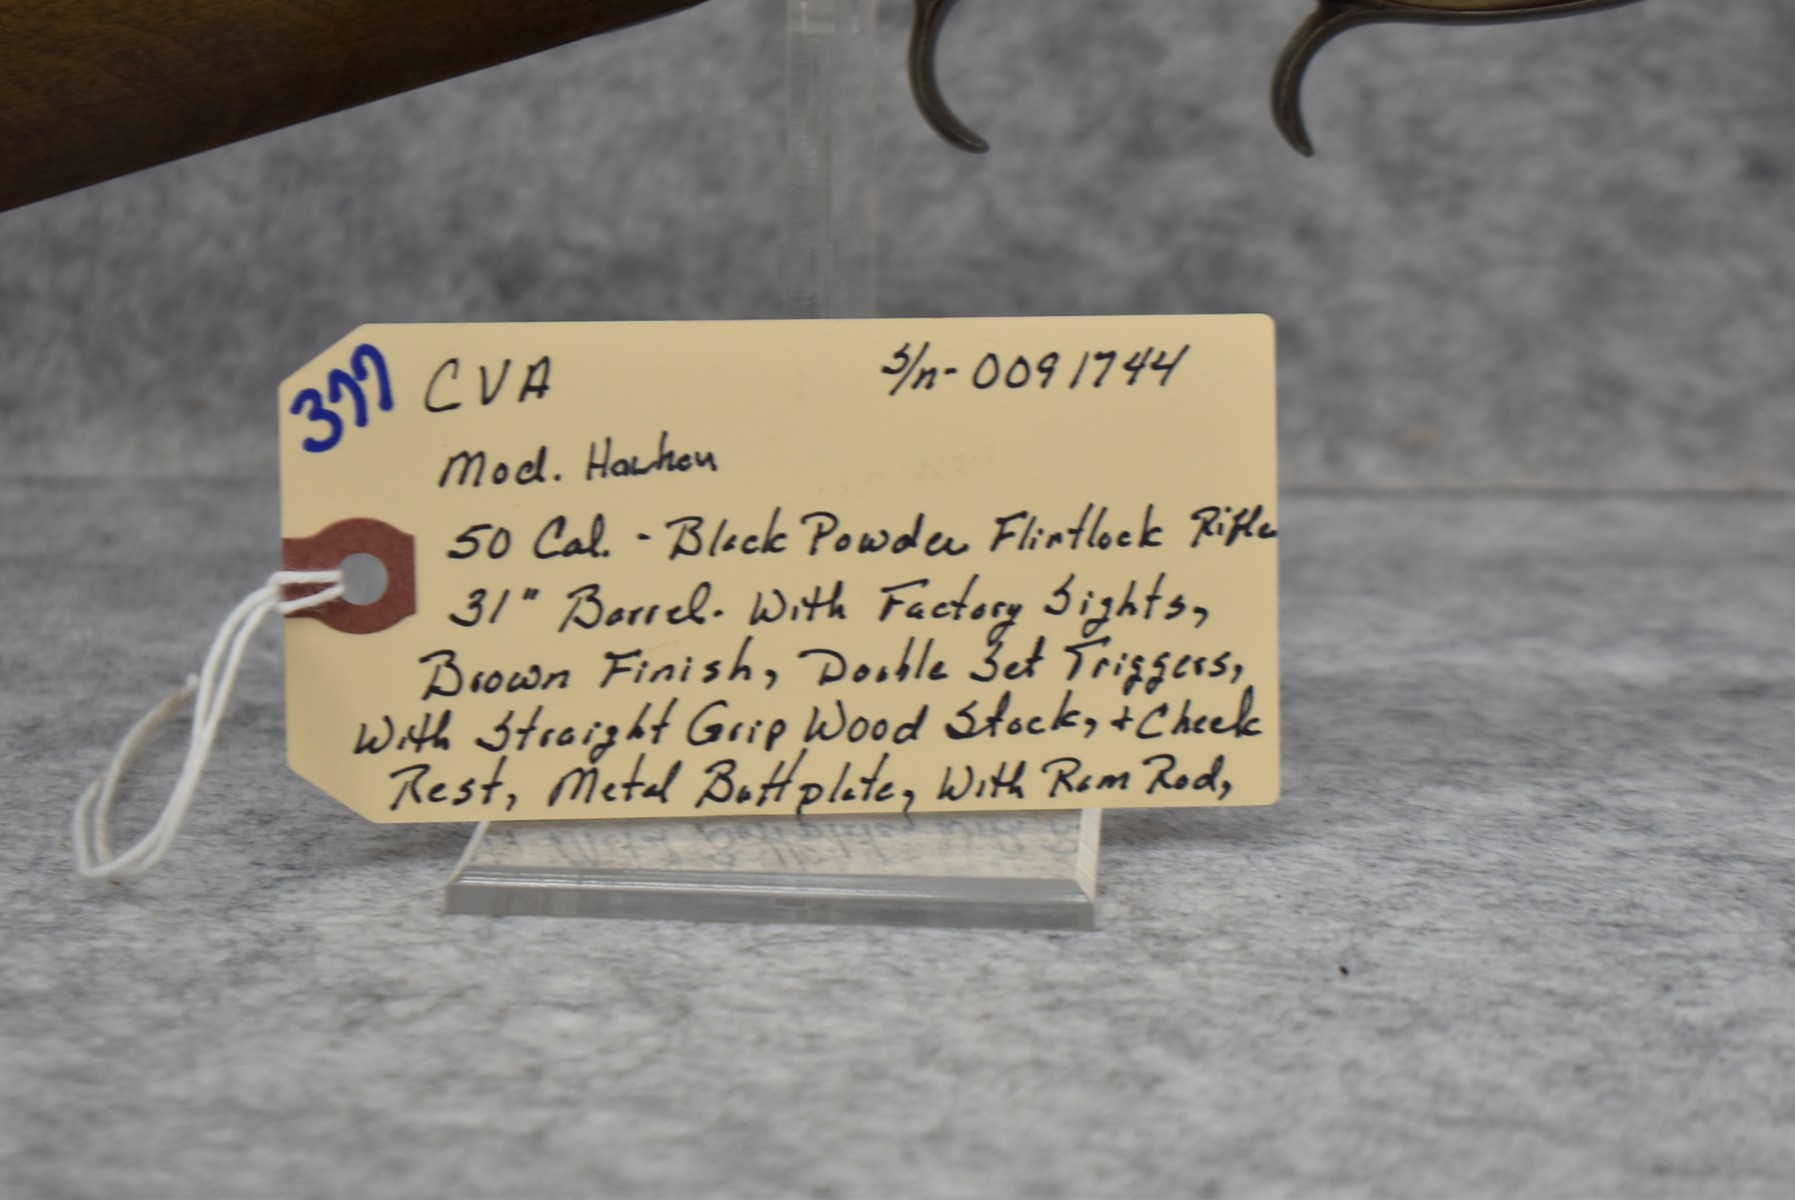 377 CVA S/n-0091744
Mod. Hawken
50 Cal. - Black Powder Flintlock Rifle
31" Barrel. With Factory Sights,
Brown Finish, Double Set Triggers,
With Straight Grip Wood Stock, + Cheek
Rest, Metal Buttplate, With Ram Rod,